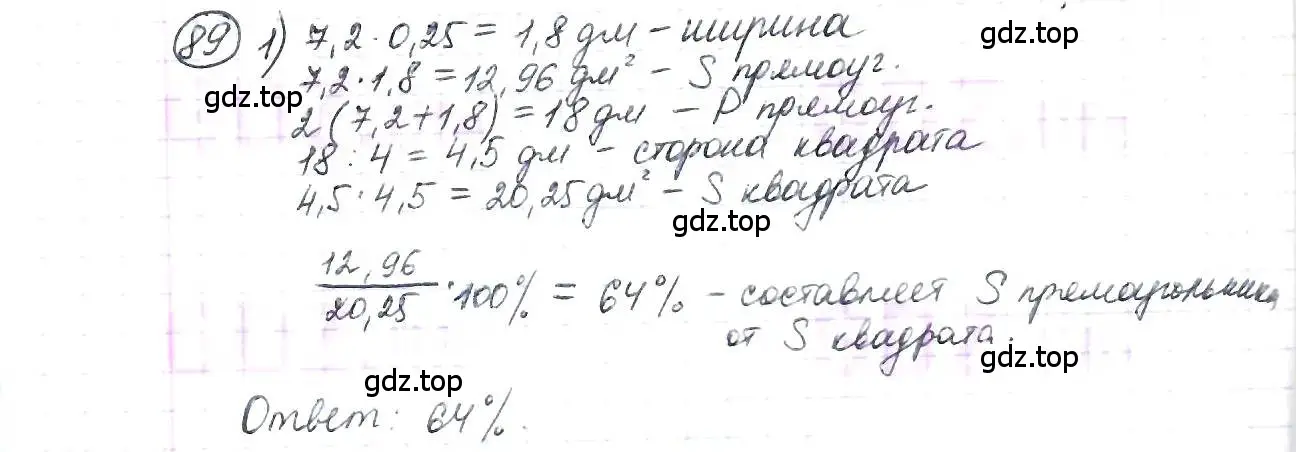 89 1) 7,2 · 0,25 = 1,8 дм – ширина
7,2 · 1,8 = 12,96 дм² – S прямоуг.
gdz.top
2 (7,2+1,8) = 18 дм – P прямоуг.
18 : 4 = 4,5 дм – сторона квадрата
4,5 · 4,5 = 20,25 дм² – S квадрата
gdz.top
12,96/20,25 · 100% = 64% – составляет S прямоугольника
от S квадрата.
gdz.top
gdz.top
Ответ: 64%.
gdz.top